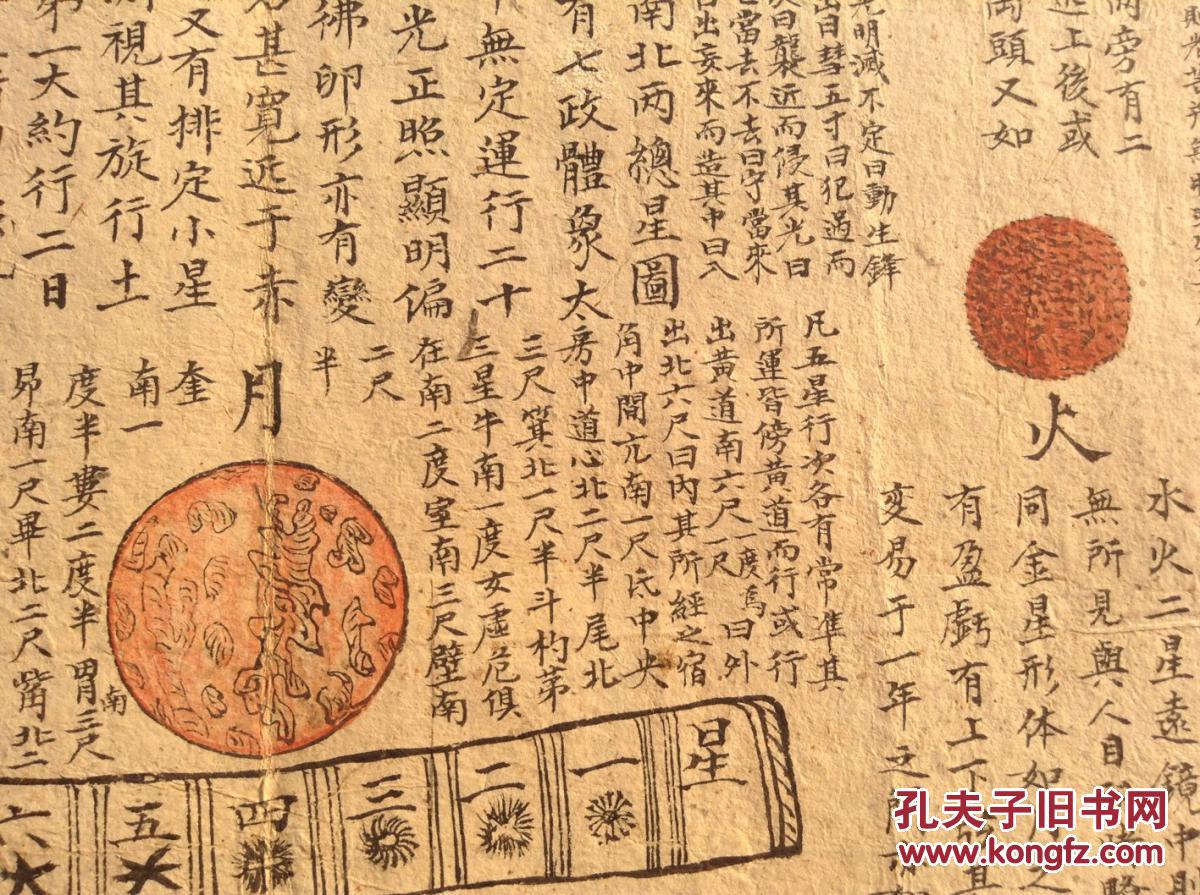 两旁有二
近上後或
両頭又如
火
水火二星遠鏡
無所見與人目
同金星形体如
有盈虧有上下
变易于一年之
光明滅不定曰動生鋒
出自彗五寸曰犯過而
曰襲近而侵其光曰
當去不去曰守當來
出亥來而造其中曰入
凡五星行次各有常準其
所運皆傍黃道而行或行
出黃道南六尺一尺一度焉曰外
出北六尺曰內其所經之宿
南北两總星圖
角中間亢南一尺氐中央
有七政體象太
房中道心北二尺半尾北
無定運行二十
三尺箕北一尺半斗杓第
三星牛南一度女虛危俱
光正照顯明偏
在南二度室南三尺壁南
彿卵形亦有變
二尺
半
甚寬近于赤
月
又有排定小星
奎
視其旋行土
南一
度半婁二度半胃三尺
南
第一大約行二日
昴南一尺畢北二尺觜北二
星
一
二
三
四
五
六
孔夫子旧书网
www.kongfz.com